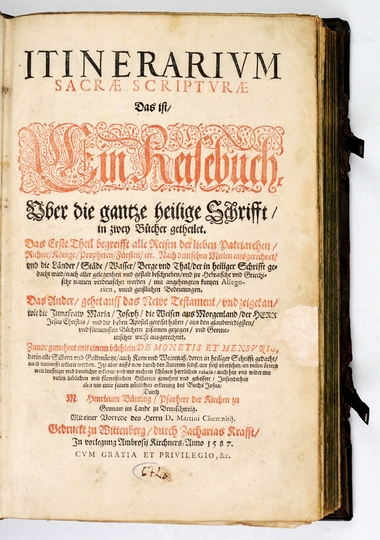 ITINERARIVM
SACRÆ SCRIPTVRÆ
Das ist/
Ein Reisebuch,
Vber die gantze heilige Schrifft/
in zwey Bücher getheilet.
Das Erste Theil begreifft alle Reisen der lieben Patriarchen/
Richter/Könige/Propheten/Fürsten/etc. Nach deutschen Meilen ausgerechnet/
vnd die Länder/Städe/Wasser/Berge vnd Thal/der in heiliger Schrifft ge-
dacht wird/nach aller gelegenheit vnd gestalt beschrieben/vnd jre Hebraische vnd Griechi-
sche namen verdeutschet werden/mit angehengten kurtzen Allego-
rien/vnd geistlichen Bedeutungen.
Das Ander/gehet auff das Newe Testament/vnd zeiget an/
wie die Junckfraw Maria/Joseph/die Weisen aus Morgenland/der HERR
Jesus Christus/vnd die lieben Apostel gereiset haben/aus den glaubwirdigsten/
vnd fürnemsten Büchern zusamen gezogen/vnd Geome-
trischer weise ausgerechnet.
Zuuor gemehret mit einem büchlein DE MONETIS ET MENSVRIS,
darin alle Silbern vnd Goldmüntze/auch Korn vnd Weinmasse/deren in heiliger Schrifft gedacht/
Durch
M. Henricum Bünting/Pfarherr der Kirchen zu
Gronaw im Lande zu Braunschweig.
Mit einer Vorrede des Herrn D. Martini Chemnitij.
Gedruckt zu Wittenberg/durch Zacharias Krafft/
In vorlegung Ambrosij Kirchners/Anno 1587.
CVM GRATIA ET PRIVILEGIO, &c.